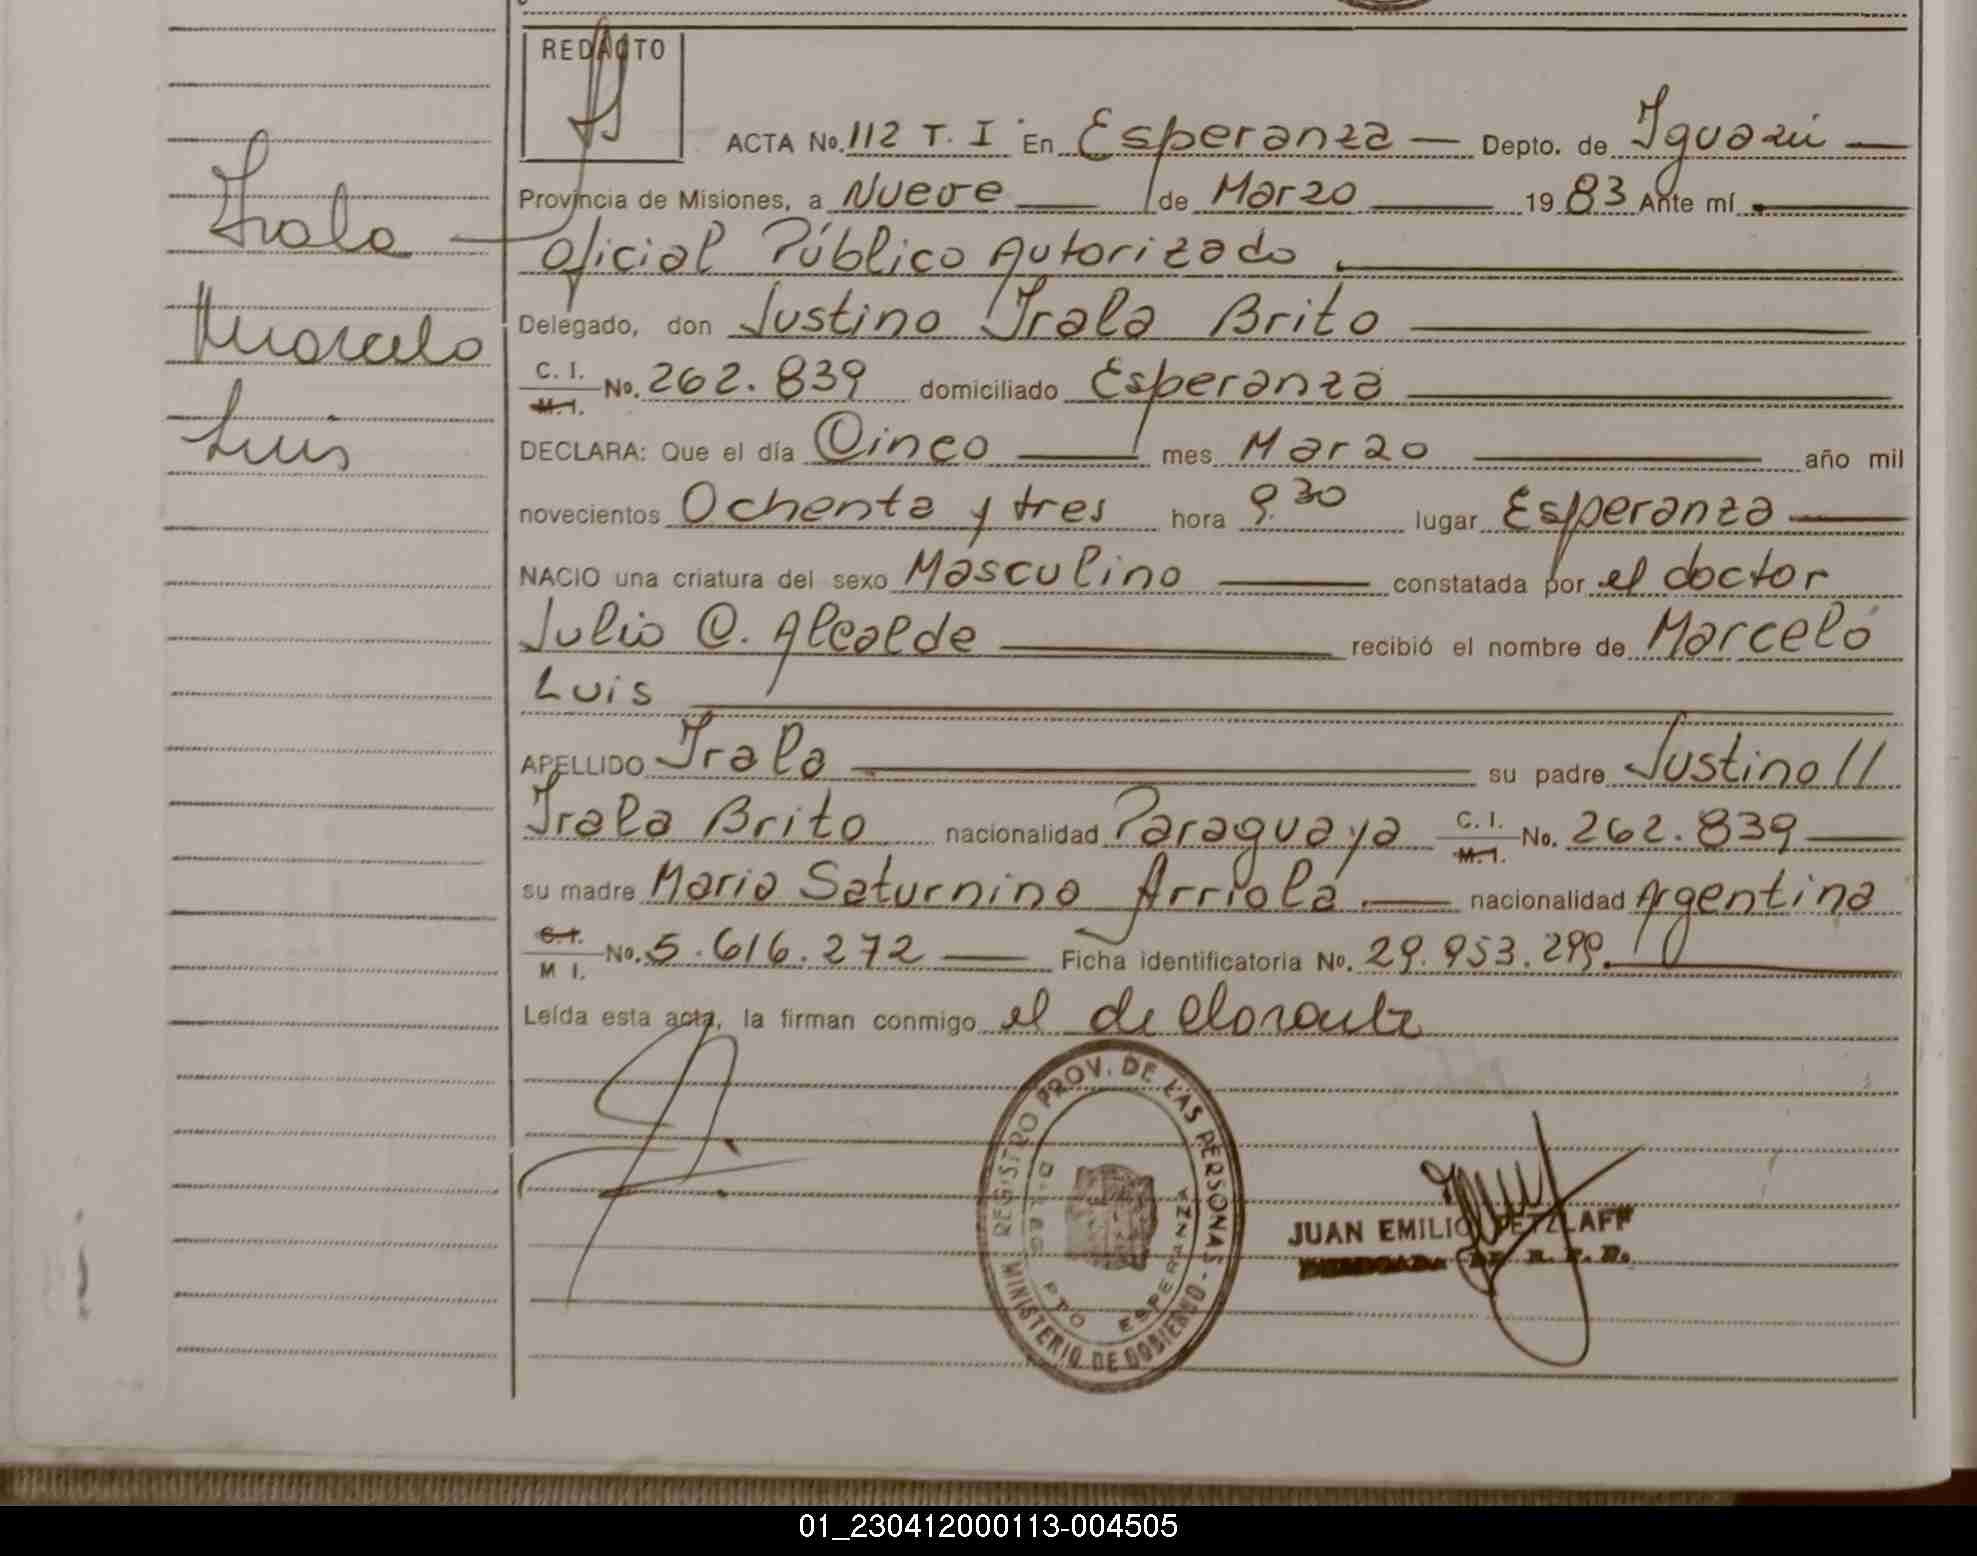 REDACTO
Irala
Marcelo
Luis
ACTA No. 112 T. I En Esperanza — Depto. de Iguazú —
Provincia de Misiones, a Nueve — de Marzo — 1983 Ante mí
Oficial Público Autorizado
Delegado, don Justino Irala Brito
C. I. M. I. No. 262.839 domiciliado Esperanza
DECLARA: Que el día Cinco — mes Marzo — año mil
novecientos Ochenta y tres hora 9.30 lugar Esperanza —
NACIO una criatura del sexo Masculino — constatada por el doctor
Julio C. Alcalde — recibió el nombre de Marcelo
Luis
APELLIDO Irala — su padre Justino //
Irala Brito nacionalidad Paraguaya C. I. M. I. No. 262.839 —
su madre Maria Saturnina Arriola — nacionalidad Argentina
C. I. M I. No. 5.616.272 — Ficha identificatoria No. 29.953.299.
Leída esta acta, la firman conmigo el declarante
REGISTRO PROV. DE LAS PERSONAS - MINISTERIO DE GOBIERNO
PTO ESPERANZA
JUAN EMILIO PETZLAFF
01_230412000113-004505